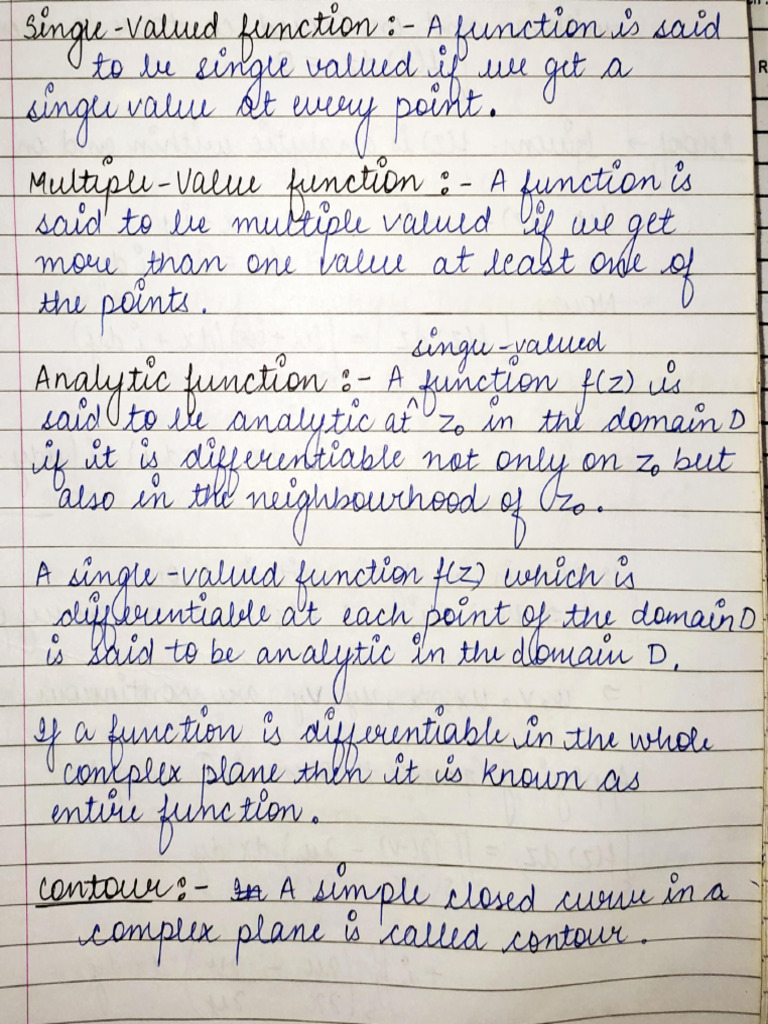 Single-Valued function :- A function is said
to be single valued if we get a
single value at every point.
Multiple-Value function :- A function is
said to be multiple valued if we get
more than one value at least one of
the points.
single-valued
Analytic function :- A function f(z) is
said to be analytic at z₀ in the domain D
if it is differentiable not only on z₀ but
also in the neighbourhood of z₀.
A single-valued function f(z) which is
differentiable at each point of the domain D
is said to be analytic in the domain D.
If a function is differentiable in the whole
complex plane then it is known as
entire function.
Contour :- A simple closed curve in a
complex plane is called contour.